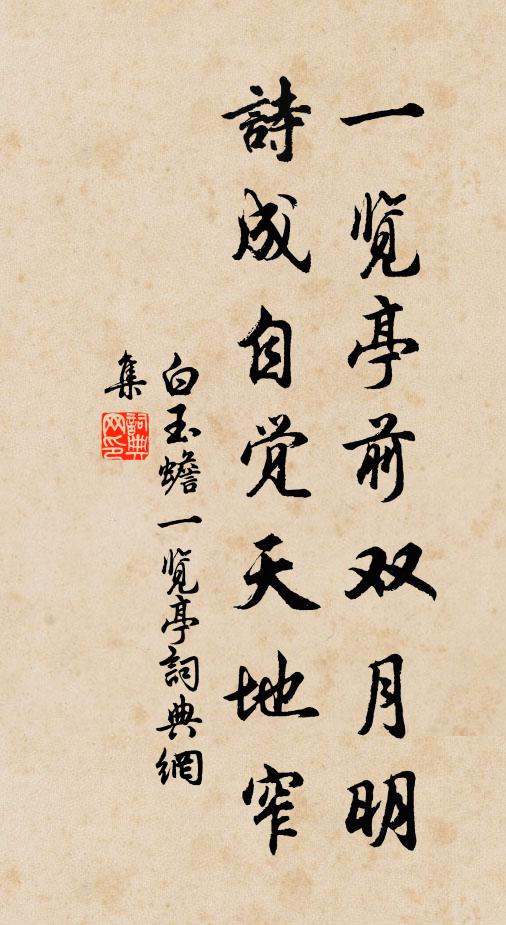 一览亭前双月明
詩成自觉天地窄
白玉蟾一览亭詞典網
集
詞典网印